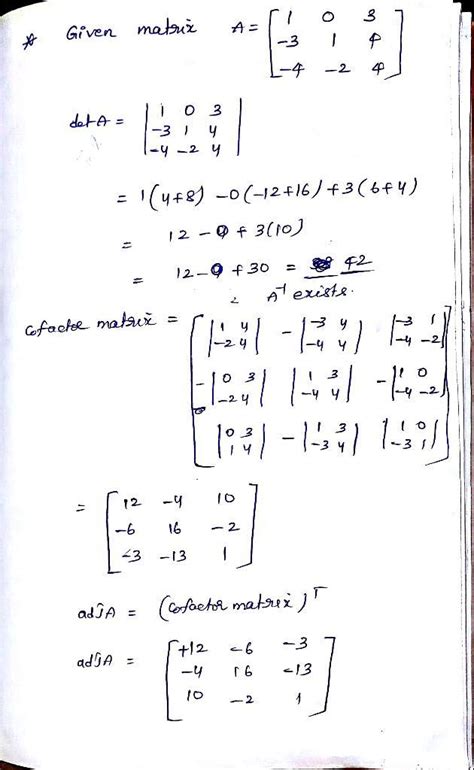 * Given matrix A = [ 1 0 3
-3 1 4
-4 -2 4 ]
det A = | 1 0 3
-3 1 4
-4 -2 4 |
= 1(4+8) -0(-12+16) +3(6+4)
= 12 - 0 + 3(10)
= 12 - 0 + 30 = 42
∴ A⁻¹ exists.
Cofactor matrix = [ |1 4; -2 4| -|-3 4; -4 4| |-3 1; -4 -2|
-|0 3; -2 4| |1 3; -4 4| -|1 0; -4 -2|
|0 3; 1 4| -|1 3; -3 4| |1 0; -3 1| ]
= [ 12 -4 10
-6 16 -2
-3 -13 1 ]
adjA = (Cofactor matrix)ᵀ
adjA = [ +12 -6 -3
-4 16 -13
10 -2 1 ]